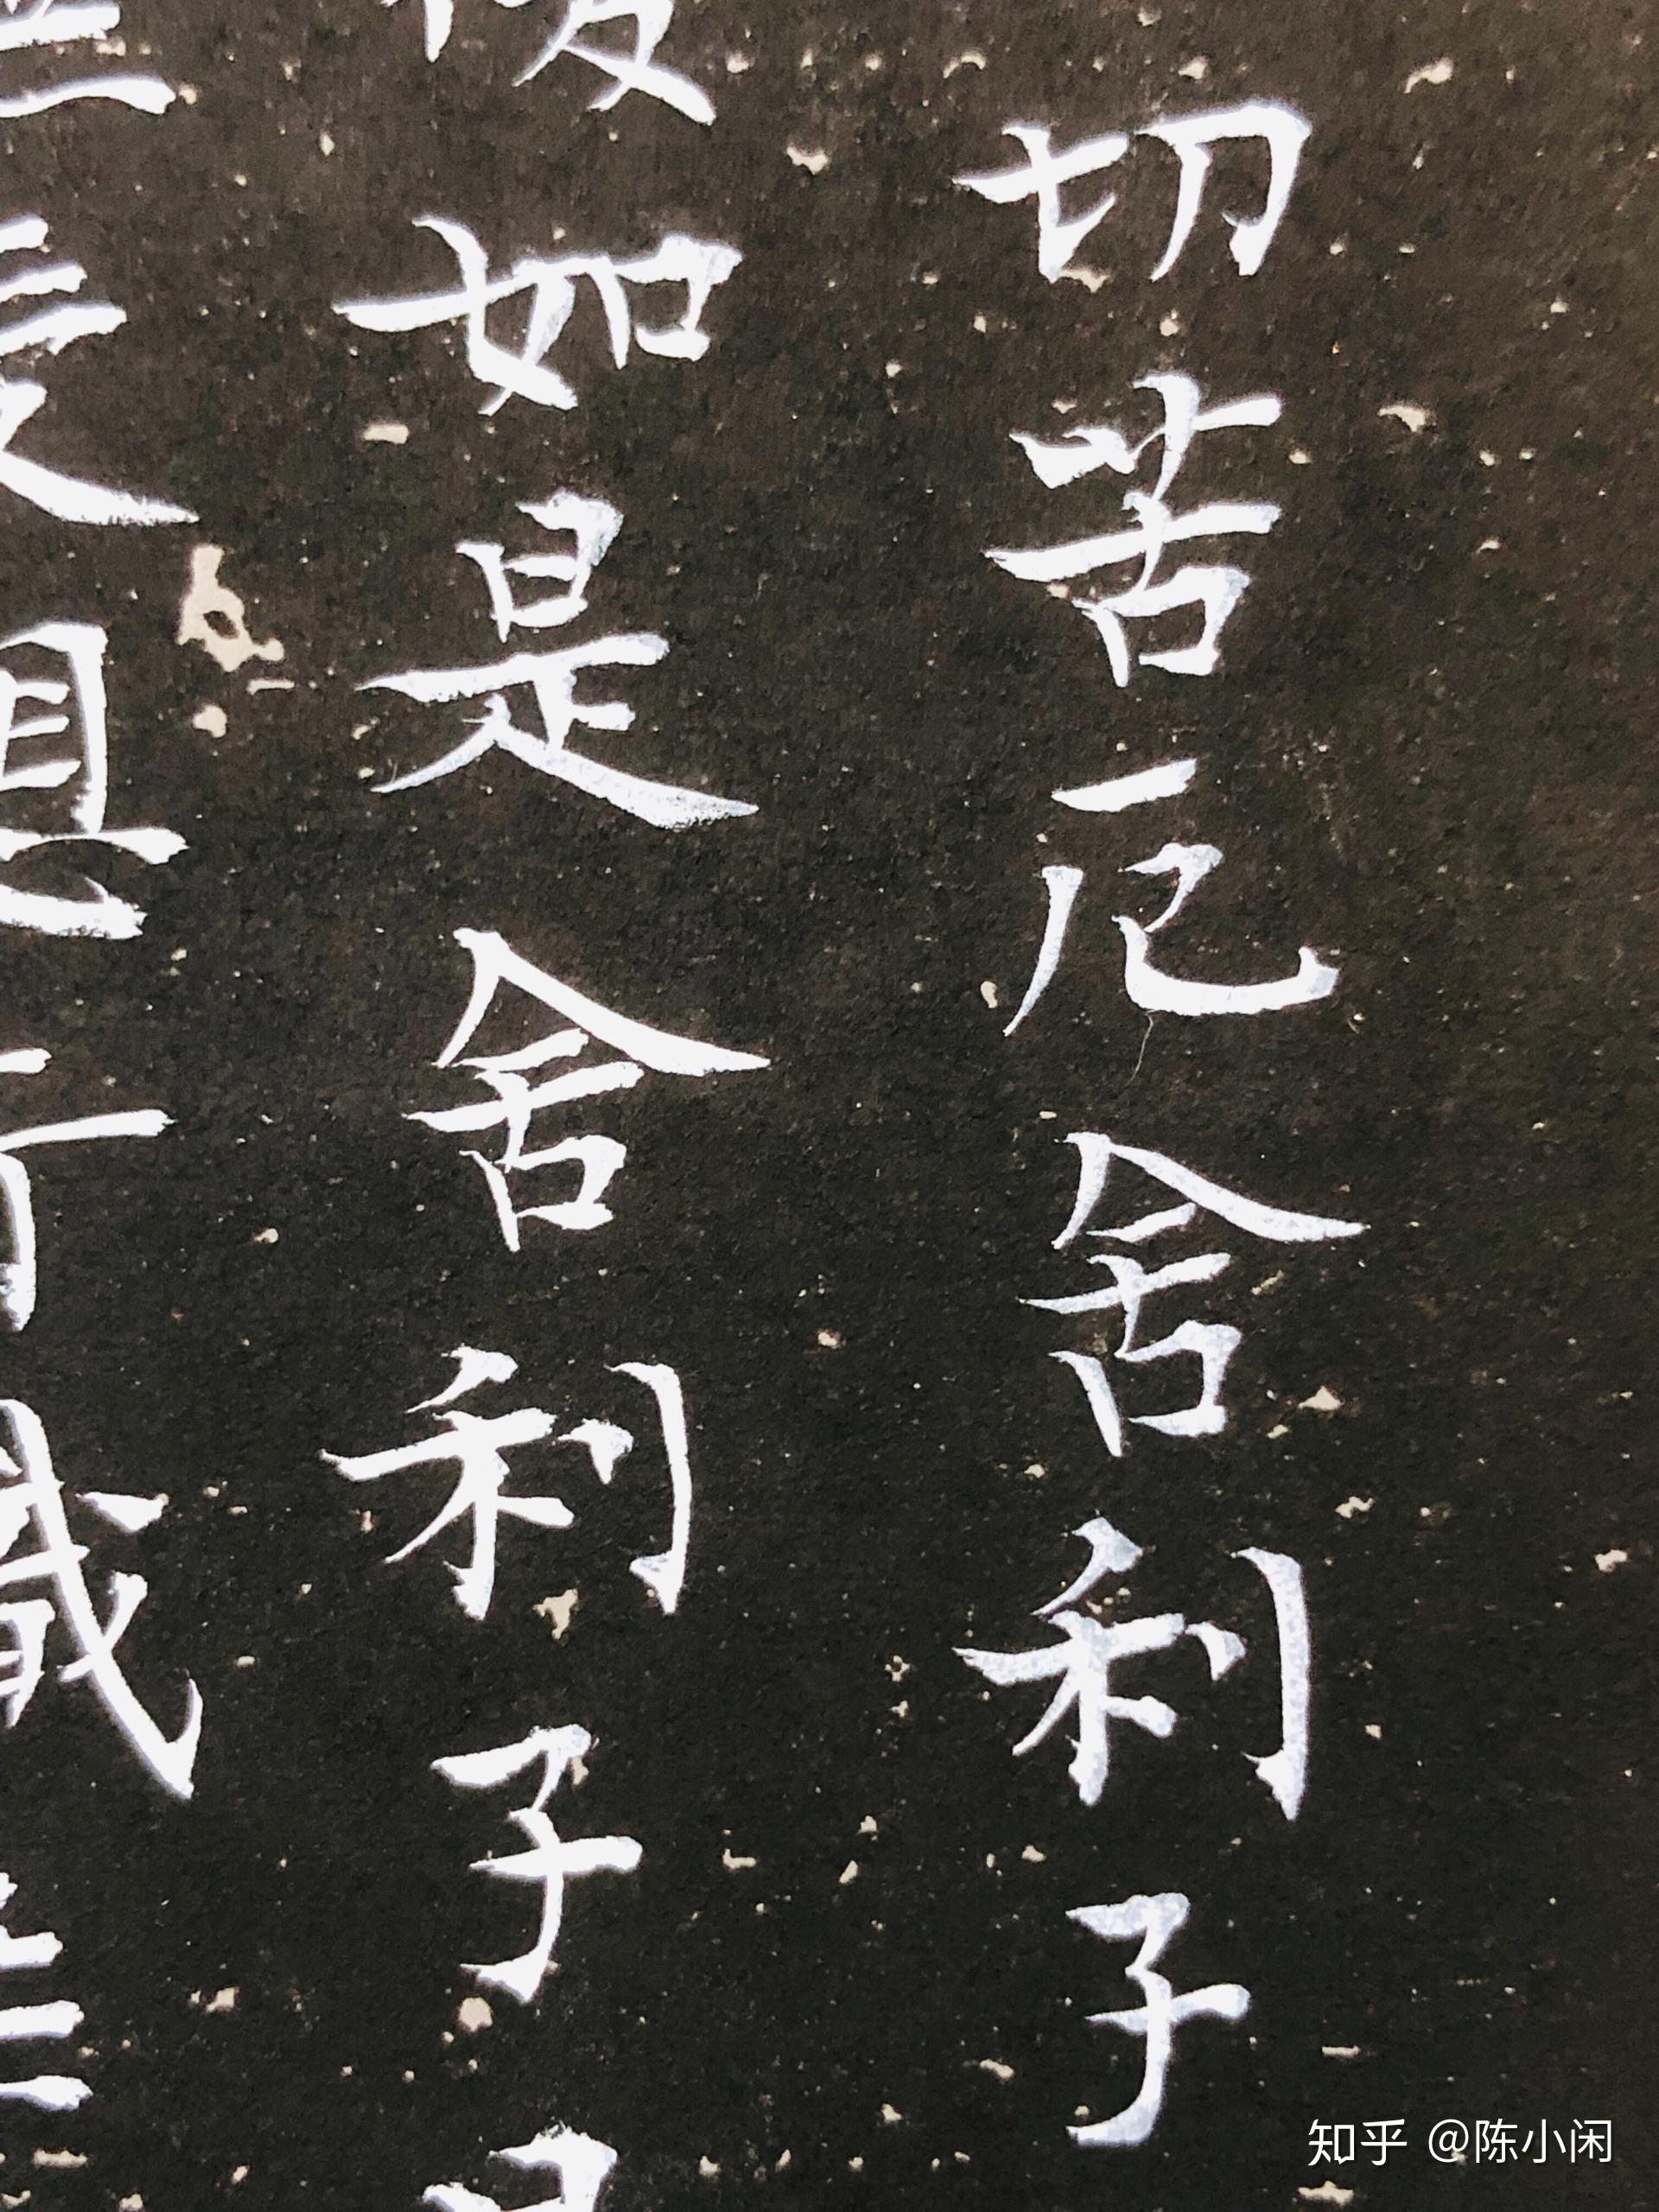 切苦厄舍利子
復如是舍利子是
無受想行識無
知乎 @陈小闲